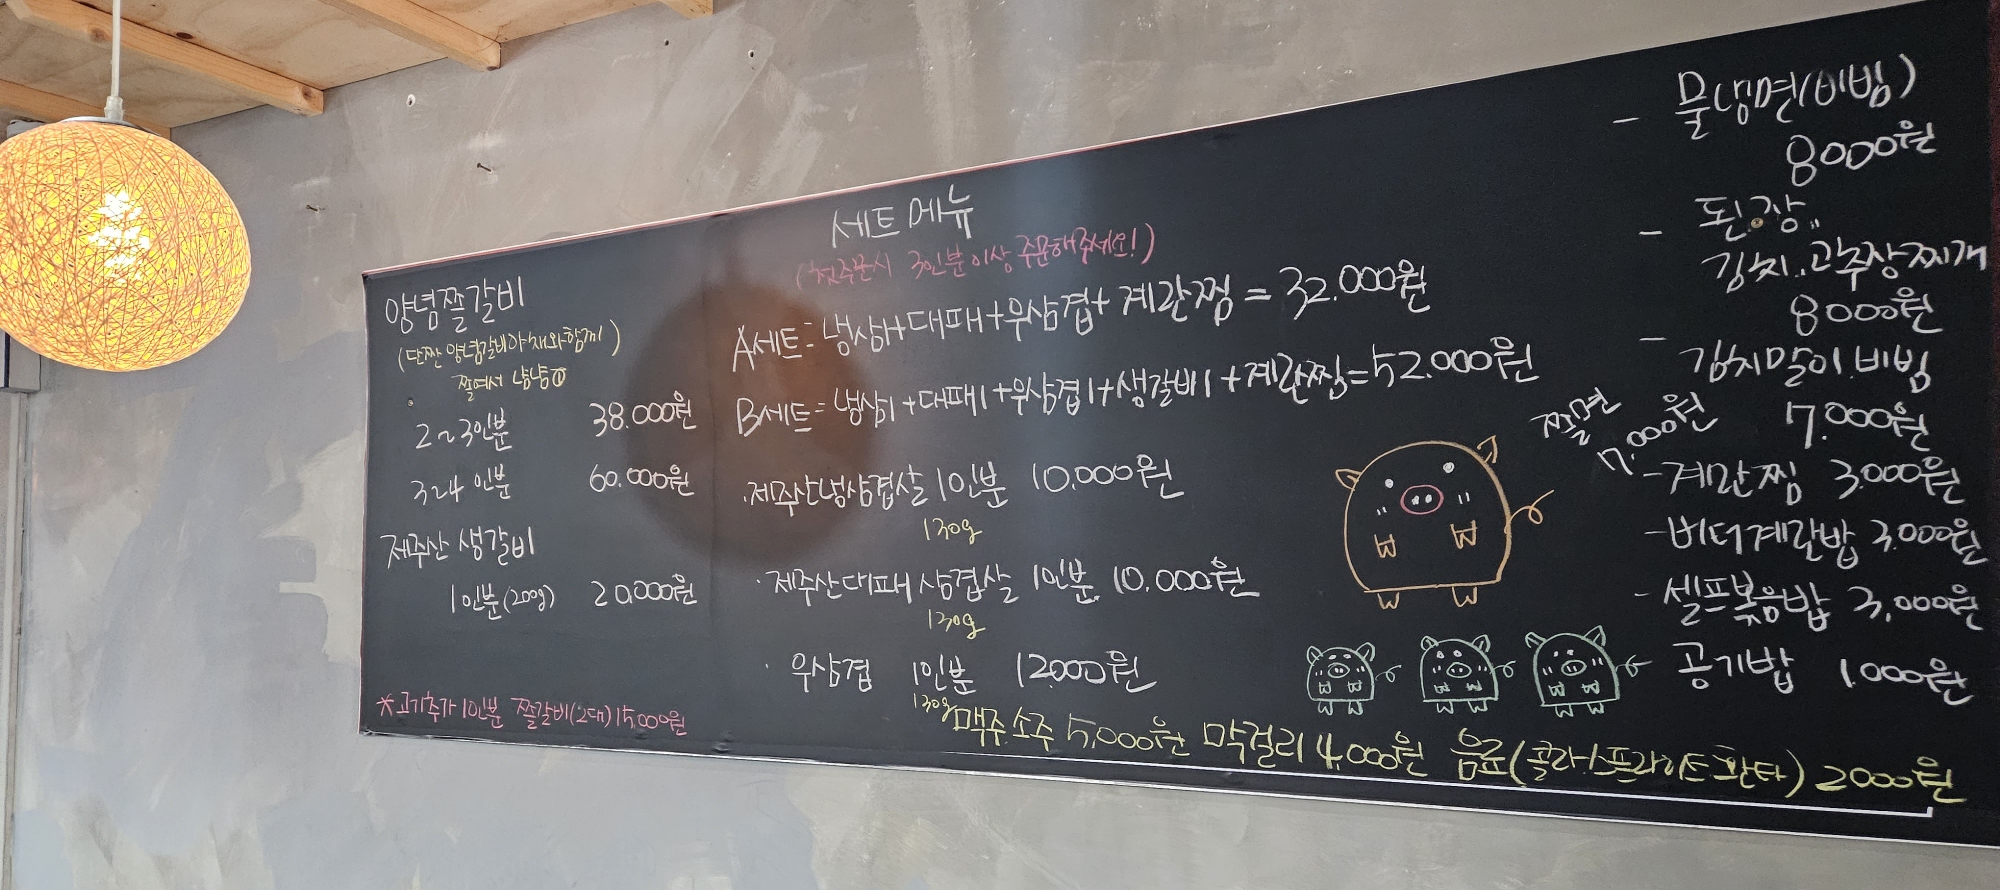 양념쫄갈비
(단짠 양념갈비야채와함께)
쫄여서 냠냠
2~3인분 38.000원
3~4 인분 60.000원
제주산 생갈비
1인분(200g) 20,000원
*고기추가 1인분 쫄갈비(2대)15,000원
세트 메뉴
(첫주문시 3인분이상 주문해주세요!)
A세트= 냉삼1+대패+우삼겹+계란찜=32.000원
B세트= 냉삼1+대패1+우삼겹1+생갈비1+계란찜=52.000원
·제주산냉삼겹살 1인분 10,000원
130g
·제주산대패 삼겹살 1인분 10,000원
130g
· 우삼겹 1인분 12000원
130g
맥주.소주 5,000원 막걸리 4,000원 음료(콜라/스프라이트.환타) 2000원
- 물냉면(비빔)
8000원
- 된장..
김치..고추장찌개
8000원
- 김치말이.비빔
7.000원
쫄면
7.000원
-계란찜 3.000원
-버터계란밥 3,000원
- 셀프볶음밥 3,000원
- 공기밥 1.000원